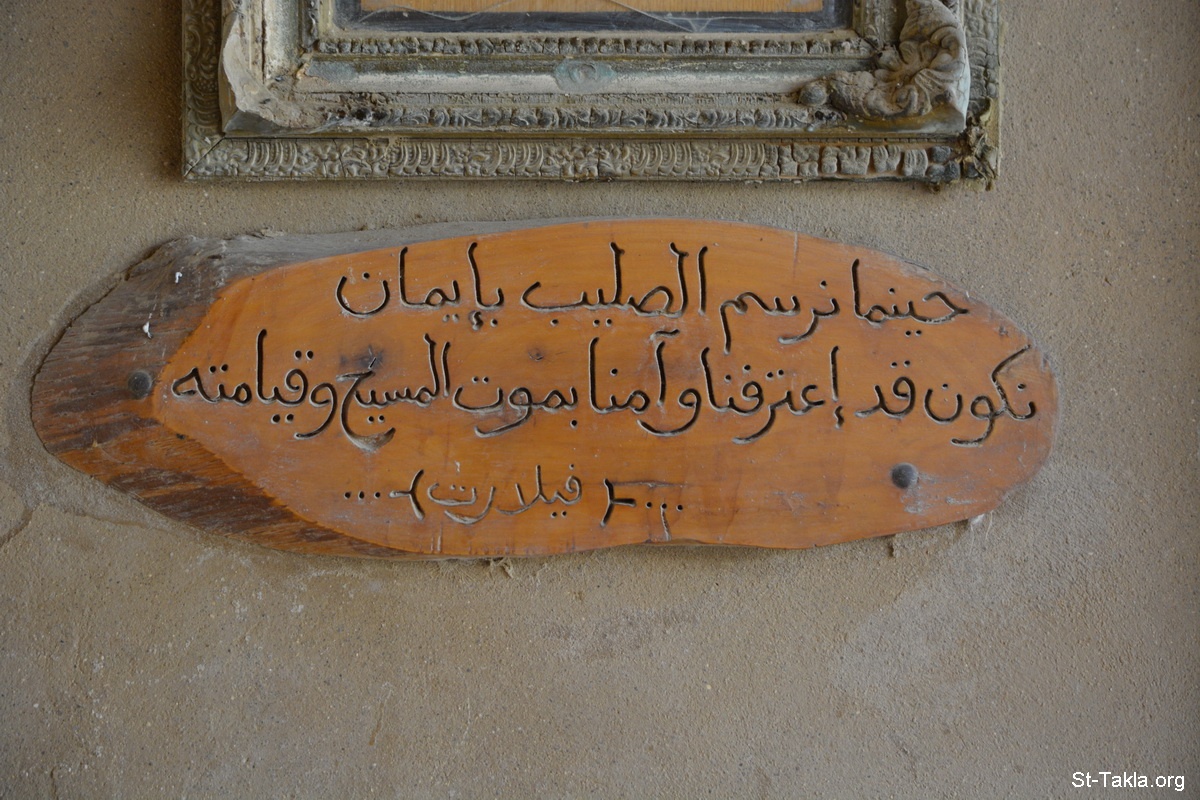 حينما نرسم الصليب بإيمان
نكون قد إعترفنا وآمنا بموت المسيح وقيامته
....{ فيلارت }....
St-Takla.org